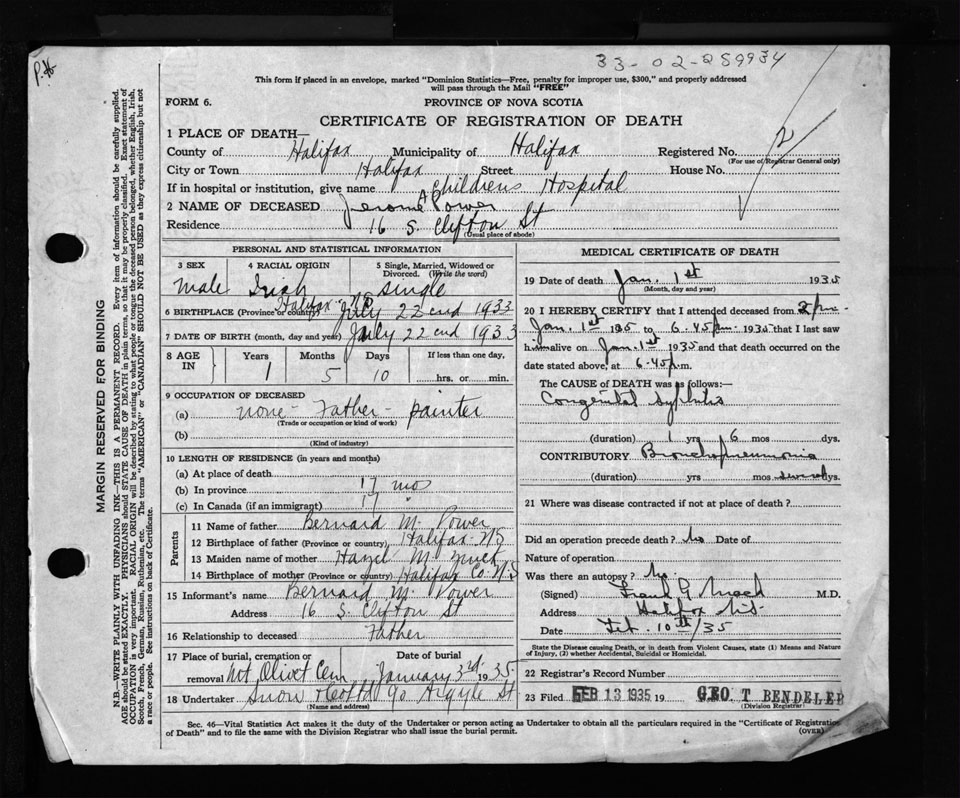 33-02-259934
P.H.
This form if placed in an envelope, marked "Dominion Statistics—Free, penalty for improper use, $300," and properly addressed
will pass through the Mail "FREE"
FORM 6.
PROVINCE OF NOVA SCOTIA
CERTIFICATE OF REGISTRATION OF DEATH
1 PLACE OF DEATH—
County of Halifax Municipality of Halifax Registered No. 2
(For use of Registrar General only)
City or Town Halifax Street House No.
If in hospital or institution, give name Childrens Hospital
2 NAME OF DECEASED Jerome A Power
Residence 16 S. Clifton St
(Usual place of abode)
MARGIN RESERVED FOR BINDING
N.B.—WRITE PLAINLY WITH UNFADING INK—THIS IS A PERMANENT RECORD. Every item of information should be carefully supplied.
AGE should be stated EXACTLY. PHYSICIANS should STATE CAUSE OF DEATH in plain terms, so that it may be properly classified. Exact statement of
OCCUPATION is very important. RACIAL ORIGIN will be described by stating to what people or tongue the deceased person belonged, whether English, Irish,
Scotch, French, German, Russian, Ruthenian, etc. The terms "AMERICAN" or "CANADIAN" SHOULD NOT BE USED as they express citizenship but not
a race or people. See instructions on back of Certificate.
PERSONAL AND STATISTICAL INFORMATION
3 SEX 4 RACIAL ORIGIN 5 Single, Married, Widowed or
Divorced. (Write the word)
Male Irish Single
6 BIRTHPLACE (Province or country) Halifax N.S July 22end 1933
7 DATE OF BIRTH (month, day and year) July 22end 1933
8 AGE IN Years Months Days If less than one day,
1 5 10 hrs. or min.
9 OCCUPATION OF DECEASED
(a) none - Father - painter
(Trade or occupation or kind of work)
(b)
(Kind of industry)
10 LENGTH OF RESIDENCE (in years and months)
(a) At place of death
(b) In province 17 mo
(c) In Canada (if an immigrant) 17 "
Parents
11 Name of father Bernard M. Power
12 Birthplace of father (Province or country) Halifax N.S
13 Maiden name of mother Hazel M.
14 Birthplace of mother (Province or country) Halifax Co. N.S
15 Informant's name Bernard M. Power
Address 16 S. Clifton St
16 Relationship to deceased Father
17 Place of burial, cremation or removal Mt Olivet Cem Date of burial January 3rd 1935
18 Undertaker Snow 90 Argyle St
(Name and address)
MEDICAL CERTIFICATE OF DEATH
19 Date of death Jan. 1st 1935
(Month, day and year)
20 I HEREBY CERTIFY that I attended deceased from 2 pm
Jan. 1st 1935 to 6.45 pm 1935 that I last saw
him alive on Jan. 1st 1935 and that death occurred on the
date stated above, at 6.45 p.m.
The CAUSE OF DEATH was as follows:
Congenital Syphilis
(duration) 1 yrs 6 mos dys.
CONTRIBUTORY Bronchopneumonia
(duration) yrs mos several dys.
21 Where was disease contracted if not at place of death?
Did an operation precede death? No Date of
Nature of operation
Was there an autopsy? No.
(Signed) Frank G Mack M.D.
Address Halifax N.S.
Date Feb. 10th/35
State the Disease causing Death, or in death from Violent Causes, state (1) Means and Nature
of Injury, (2) whether Accidental, Suicidal or Homicidal.
22 Registrar's Record Number
23 Filed FEB 13 1935 19 GEO. T BENDELER
(Division Registrar)
Sec. 46—Vital Statistics Act makes it the duty of the Undertaker or person acting as Undertaker to obtain all the particulars required in the "Certificate of Registration
of Death" and to file the same with the Division Registrar who shall issue the burial permit.
(OVER)